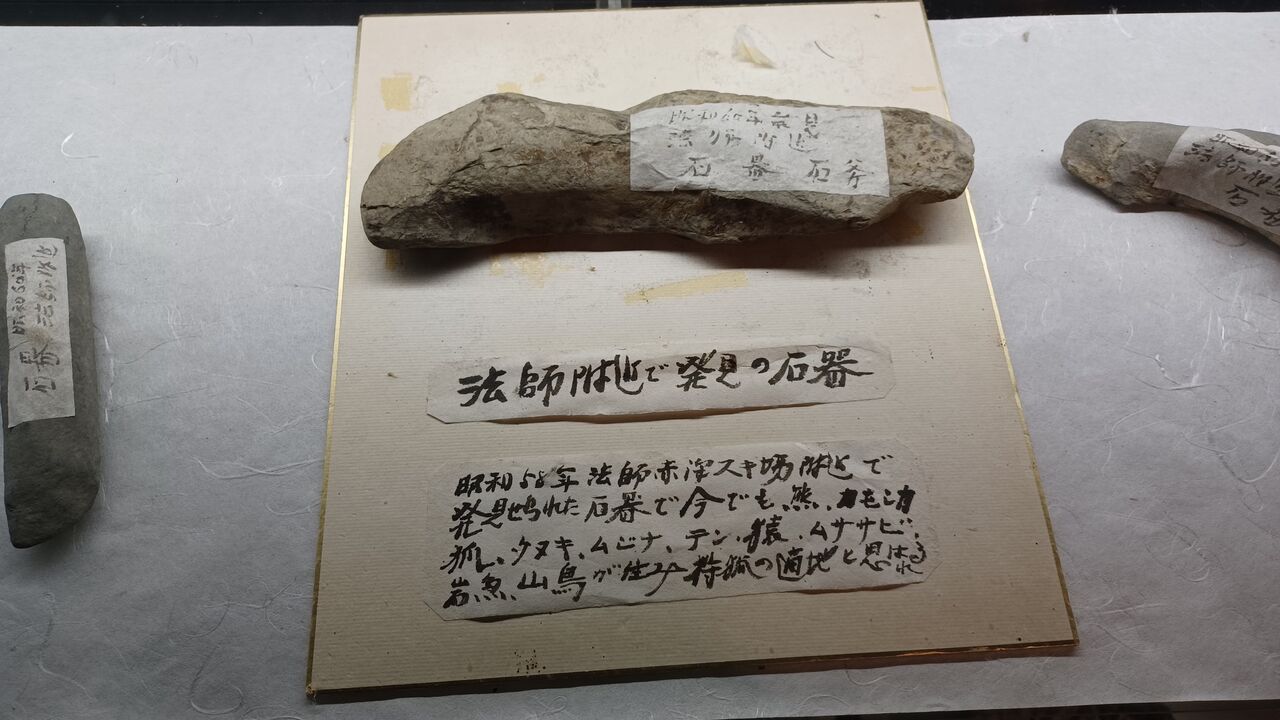 昭和60年
法師附近
石器 石斧
昭和60年
法師附近
石器
法師附近
石器
法師附近で発見の石器
昭和58年 法師赤沢スキ場附近で
発見せられた石器で今でも、熊、カモシカ
狐、タヌキ、ムジナ、テン、猿、ムササビ、
岩魚、山鳥が住み狩猟の適地と思はれる